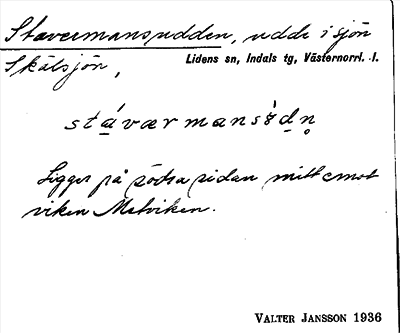 Stavermansudden, udde i sjön
Skälsjön, Lidens sn, Indals tg, Västernorrl. l.
Ligger på södra sidan mitt emot
viken Metviken.
VALTER JANSSON 1936